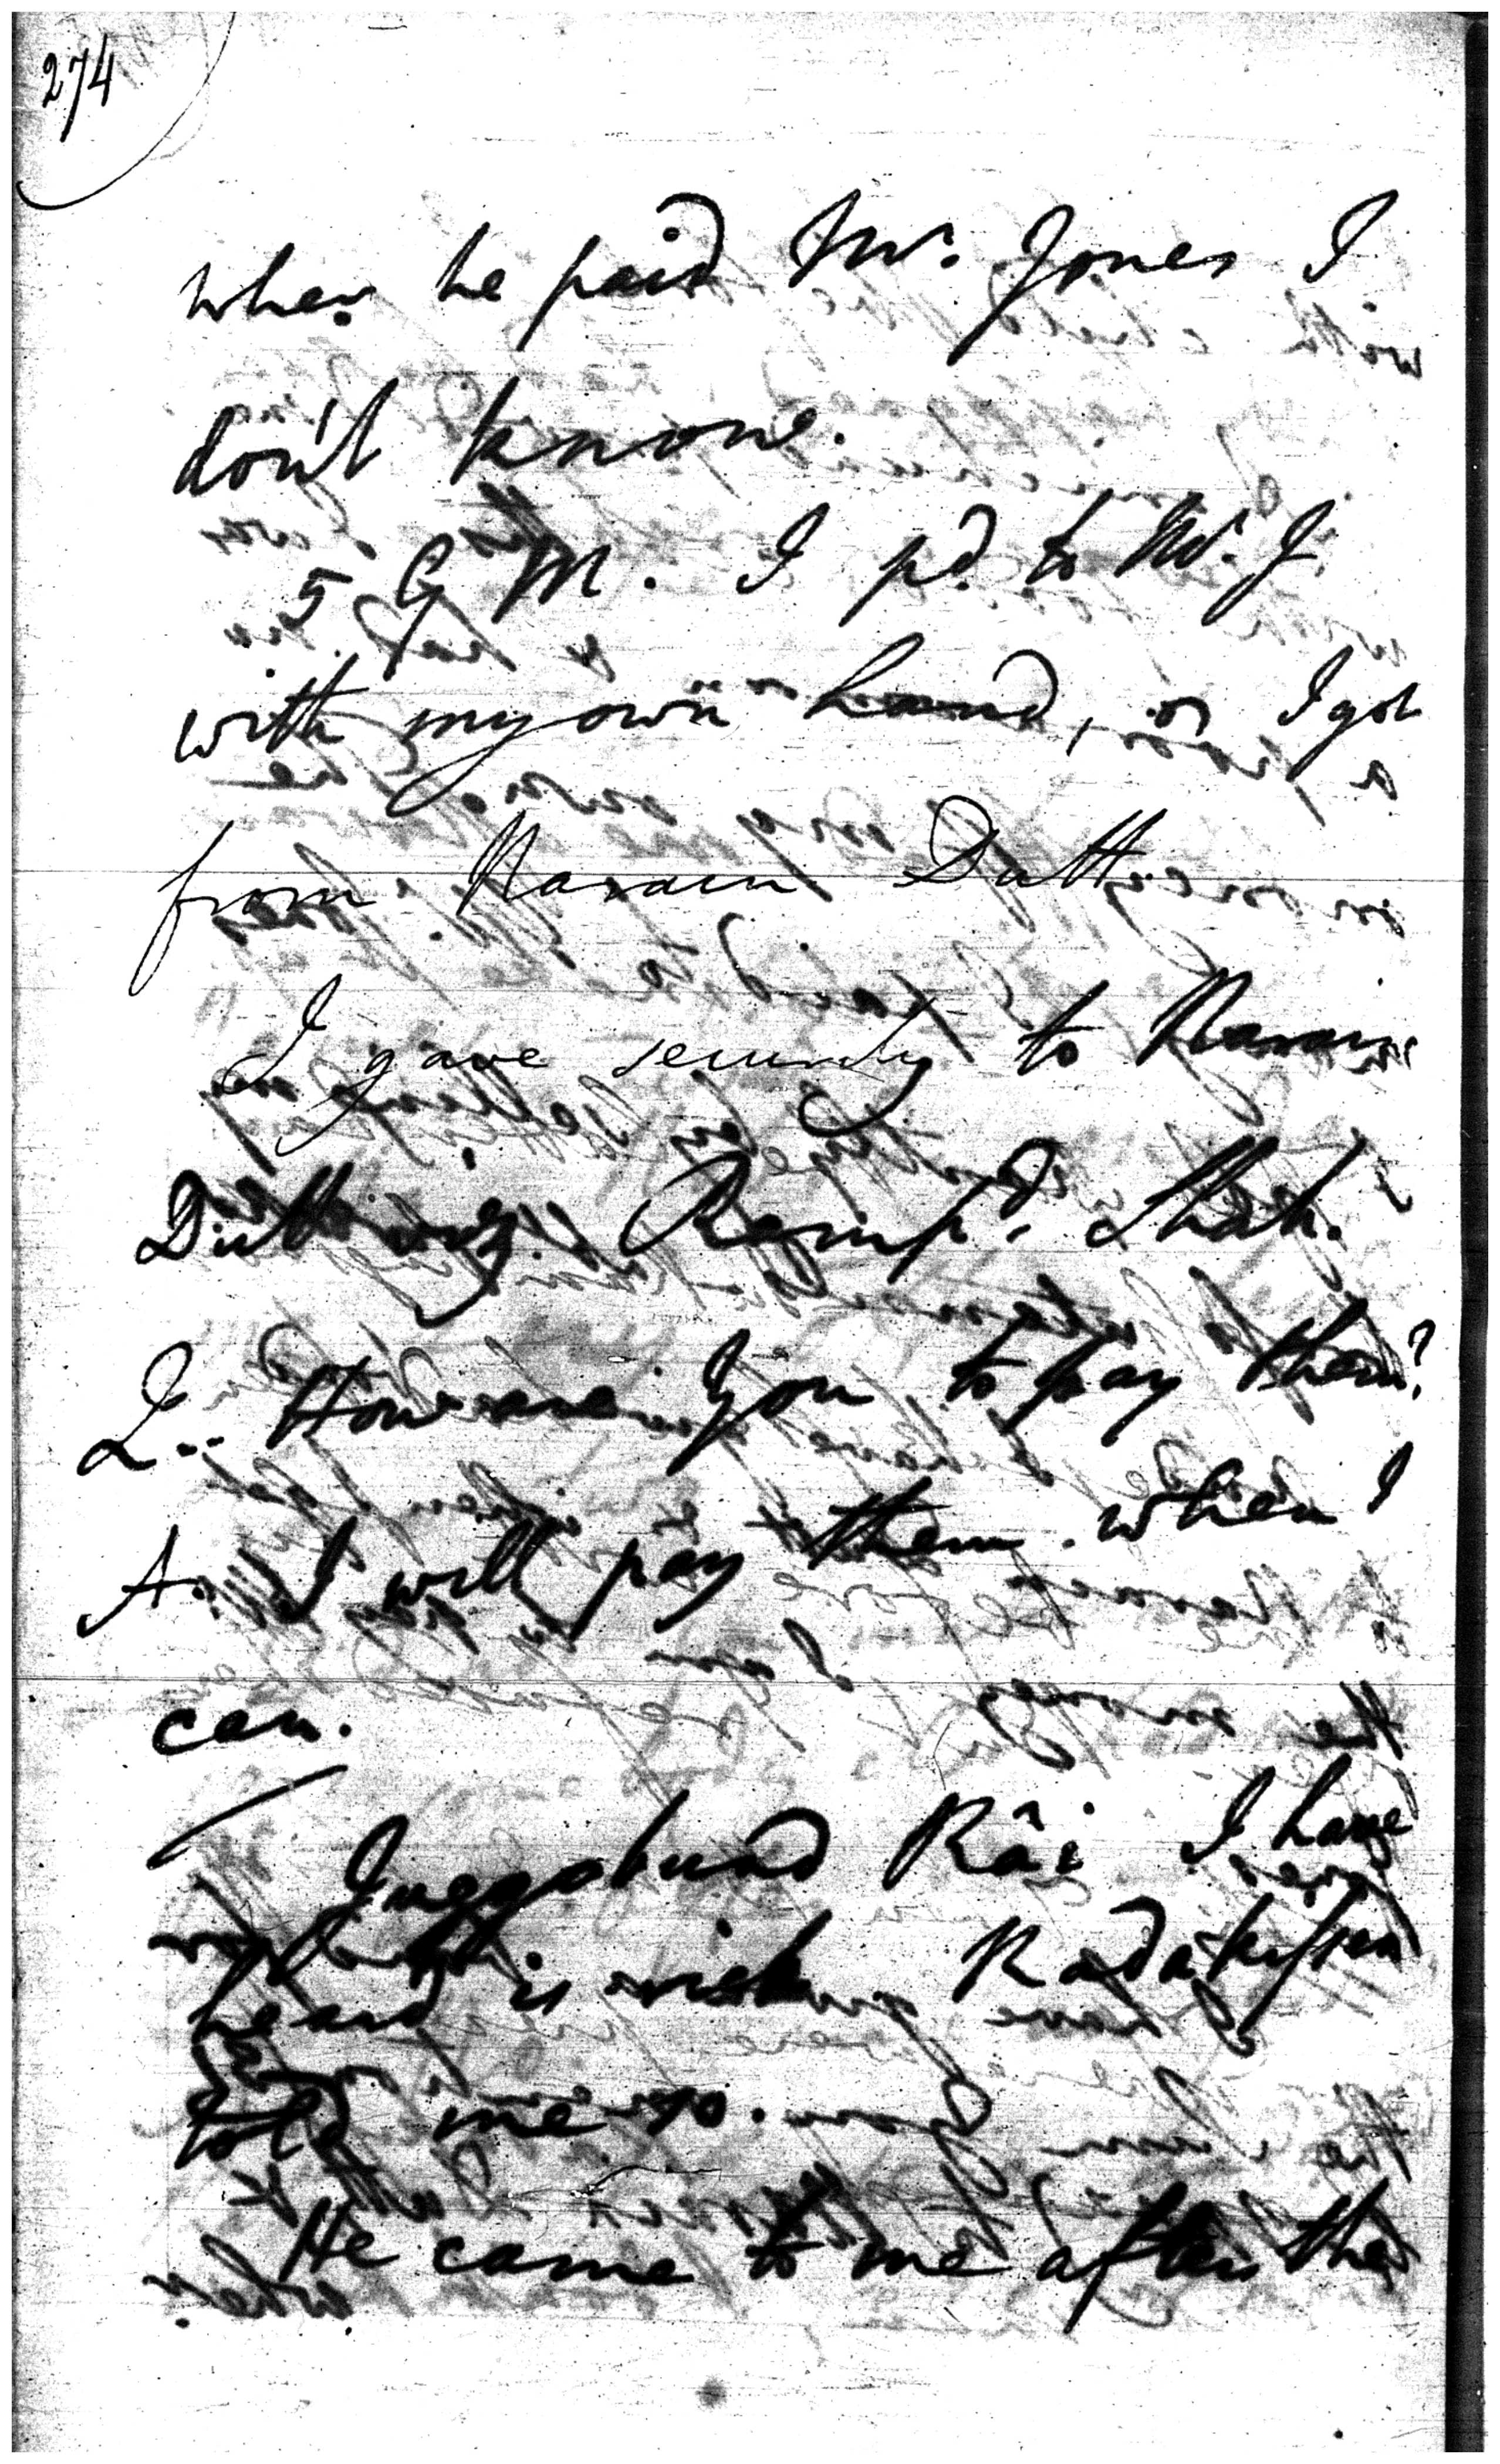 274
when he paid Mr. Jones I
don't know.
5 G M. I pd. to Mr. J
with my own hand, or I got
from Narain Dutt.
I gave security to Narain
Dutt viz. Rampd. Shah.
Q.. How are You to pay them?
A. I will pay them when I
can.
Juggobund Râi I have
heard is sick Radakissen
told me so.
He came to me after the